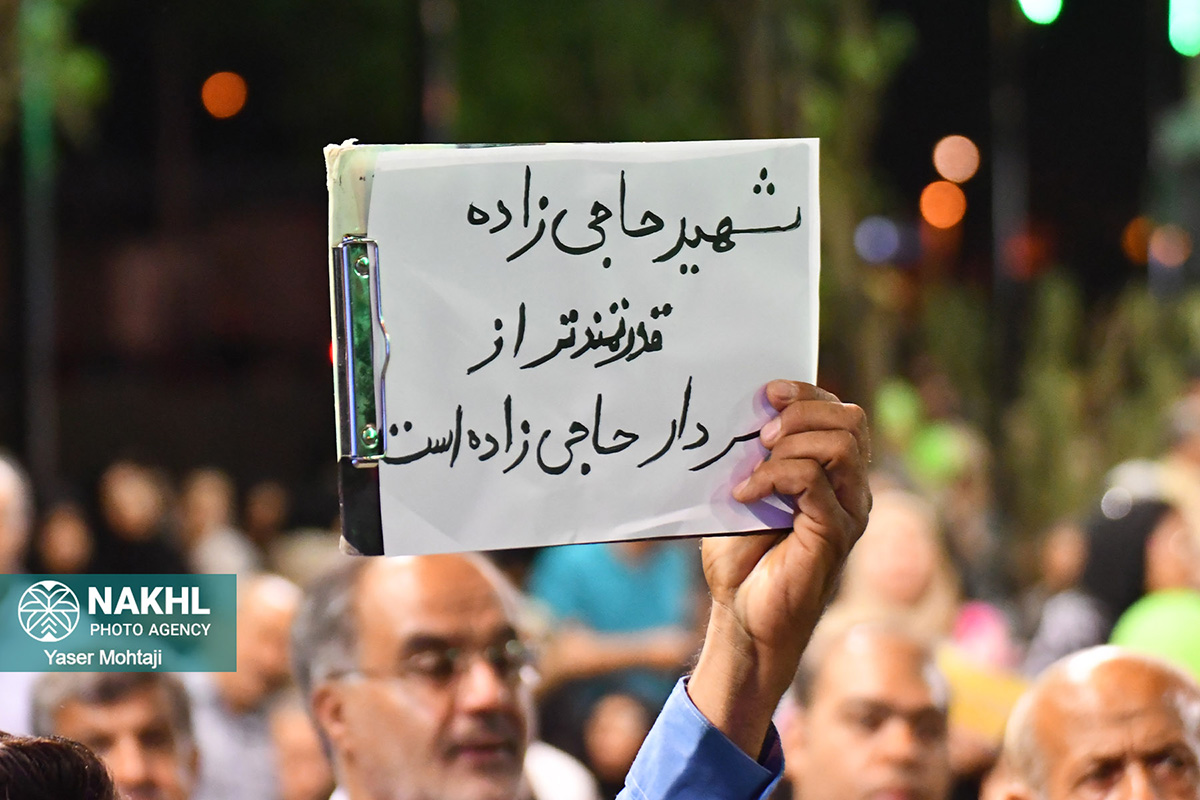 شهید حاجی زاده
قدرتمندتر از
سردار حاجی زاده است
NAKHL
PHOTO AGENCY
Yaser Mohtaji